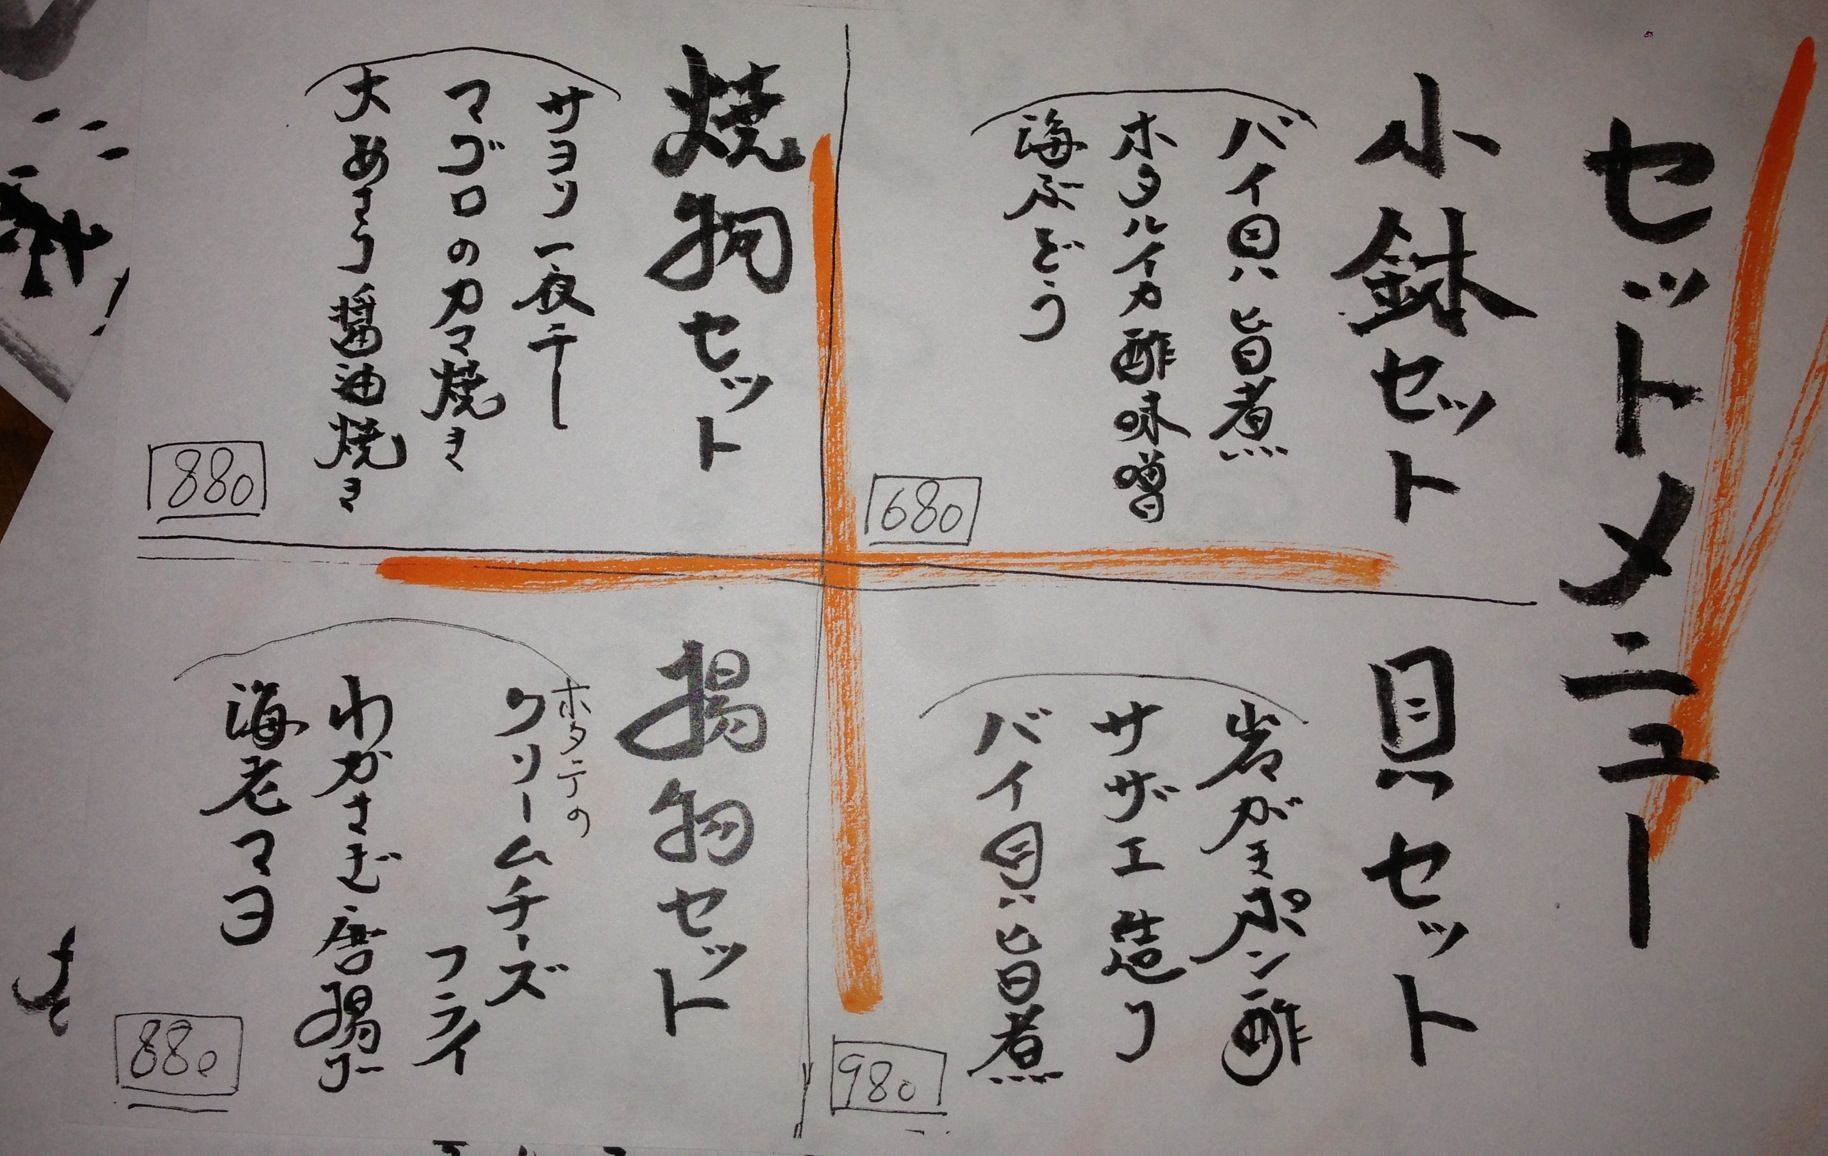 セットメニュー
小鉢セット
バイ貝旨煮
ホタルイカ酢味噌
海ぶどう
680
焼物セット
サヨリ一夜干し
マグロのカマ焼き
大あさり醤油焼き
880
貝セット
岩がきポン酢
サザエ造り
バイ貝旨煮
980
揚物セット
ホタテの
クリームチーズ
フライ
わかさぎ唐揚げ
海老マヨ
880